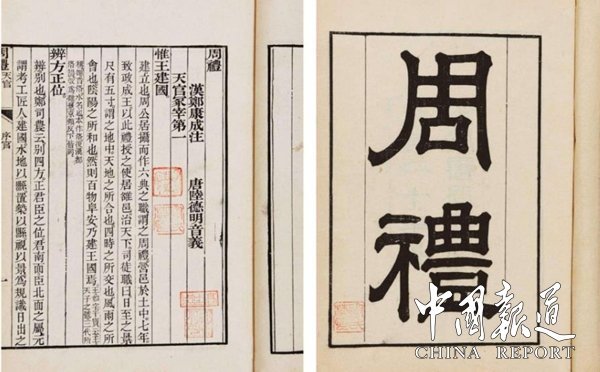 周禮
漢鄭康成注 唐陸德明音義
天官冢宰第一
惟王建國
建立也周公居攝而作六典之職謂之周禮營邑於土中七年
致政成王以此禮授之使居雒邑治天下司徒職曰日至之景
尺有五寸謂之地中天地之所合也四時之所交也風雨之所
會也陰陽之所和也然則百物阜安乃建王國焉
辨方正位
辨別也鄭司農云別四方正君臣之位君南面臣北面之屬元
謂考工匠人建國水地以縣置槷以縣視以景爲規識日出之
周禮 天官 序官 一
周禮
中國報道
CHINA REPORT